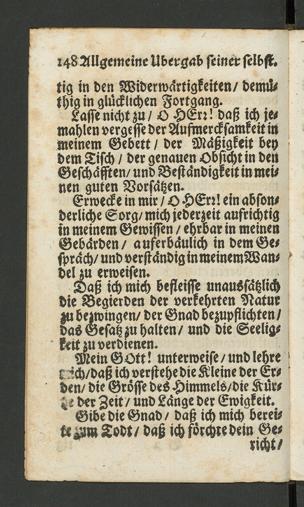 148 Allgemeine Ubergab seiner selbst.
tig in den Widerwärtigkeiten / demü-
thig in glücklichen Fortgang.
Lasse nicht zu / O HErr! daß ich je-
mahlen vergesse der Aufmercksamkeit in
meinem Gebett / der Mäßigkeit bey
dem Tisch / der genauen Obsicht in den
Geschäfften / und Beständigkeit in mei-
nen guten Vorsätzen.
Erwecke in mir / O HErr! ein abson-
derliche Sorg / mich jederzeit aufrichtig
in meinem Gewissen / ehrbar in meinen
Gebärden / auferbäulich in dem Ge-
spräch / und verständig in meinem Wan-
del zu erweisen.
Daß ich mich befleisse unausetzlich
die Begierden der verkehrten Natur
zu bezwingen / der Gnad beyzupflichten /
das Gesatz zu halten / und die Seelig-
keit zu verdienen.
Mein GOtt! unterweise / und lehre
mich / daß ich verstehe die Kleine der Er-
den / die Grösse des Himmels / die Kür-
tze der Zeit / und Länge der Ewigkeit.
Gibe die Gnad / daß ich mich berei-
te zum Todt / daß ich förchte dein Ge-
richt /